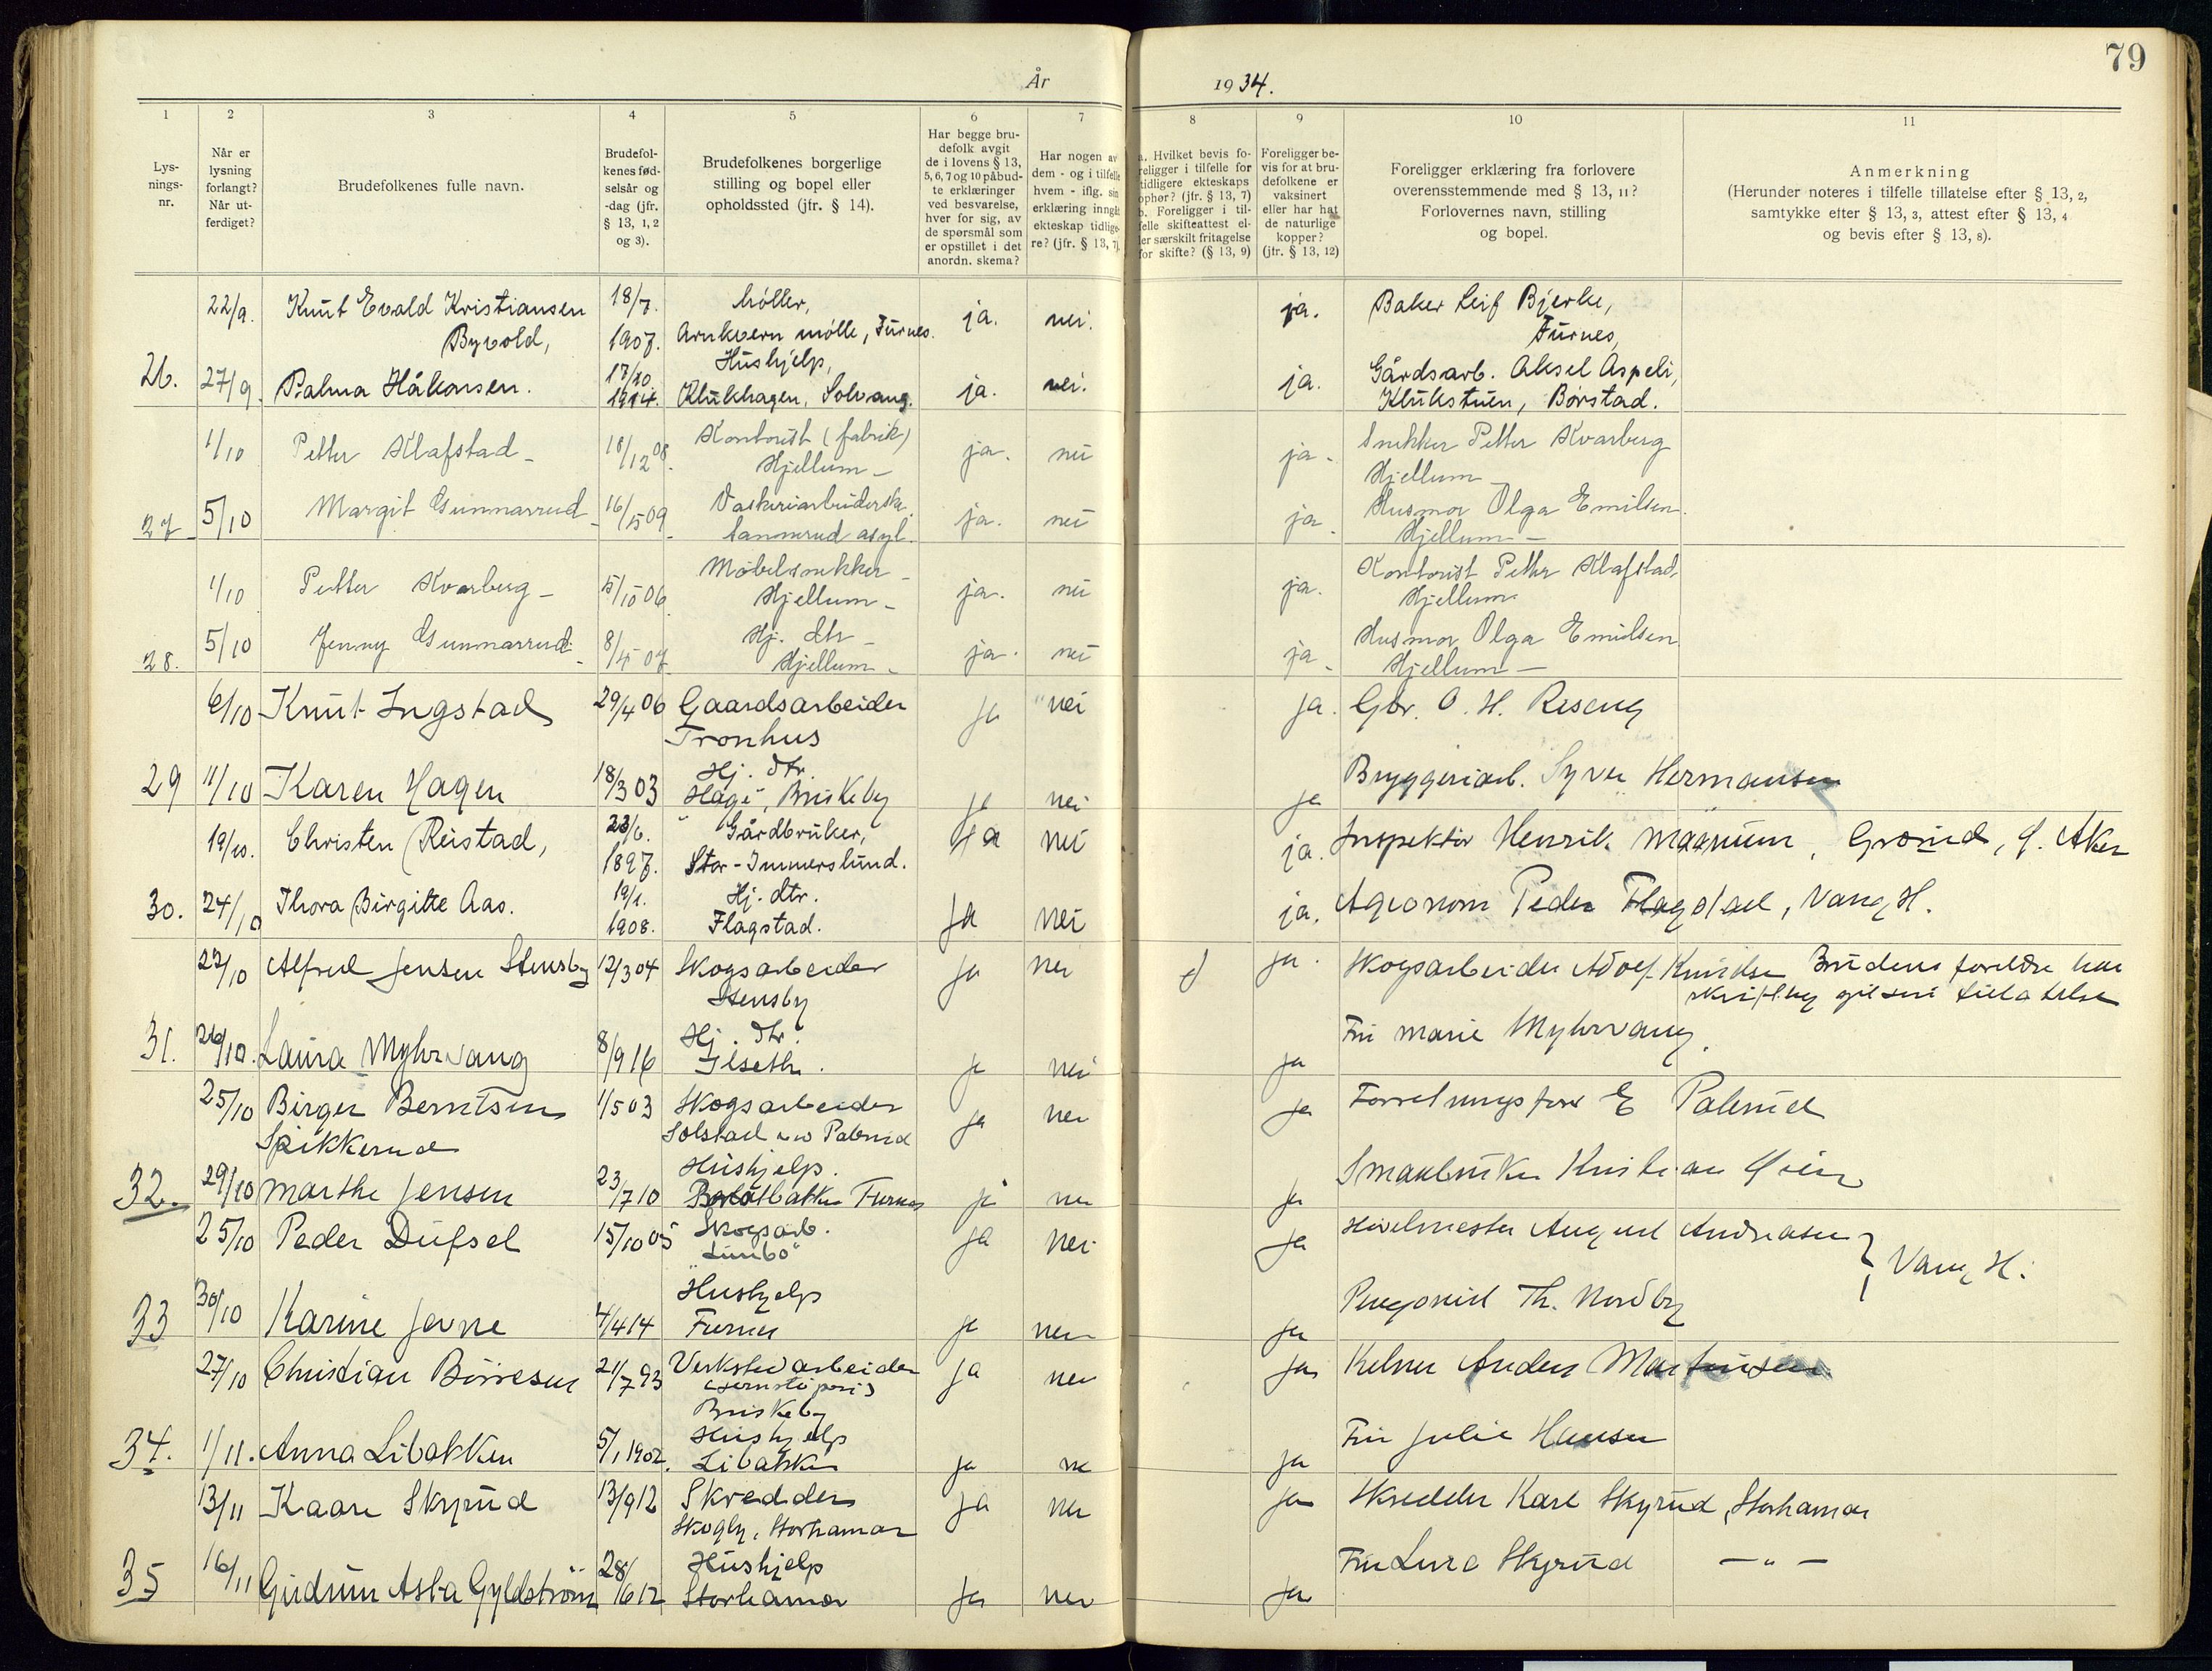 79
År 1934.
1 2 3 4 5 6 7 8 9 10 11
Lys-
nings-
nr.
Når er
lysning
forlangt?
Når ut-
ferdiget?
Brudefolkenes fulle navn.
Brudefol-
kenes fød-
selsår og
-dag (jfr.
§ 13, 1, 2
og 3).
Brudefolkenes borgerlige
stilling og bopel eller
opholdssted (jfr. § 14).
Har begge bru-
defolk avgit
de i lovens § 13,
5, 6, 7 og 10 påbud-
te erklæringer
ved besvarelse,
hver for sig, av
de spørsmål som
er opstillet i det
anordn. skema?
Har nogen av
dem - og i tilfelle
hvem - iflg. sin
erklæring inngåt
ekteskap tidlige-
re? (jfr. § 13, 7)
a. Hvilket bevis fo-
religger i tilfelle for
tidligere ekteskaps
ophør? (jfr. § 13, 7)
b. Foreligger i til-
felle skifteattest el-
ler særskilt fritagelse
for skifte? (§ 13, 9)
Foreligger be-
vis for at bru-
defolkene er
vaksinert
eller har hat
de naturlige
kopper?
(jfr. § 13, 12)
Foreligger erklæring fra forlovere
overensstemmende med § 13, 11?
Forlovernes navn, stilling
og bopel.
Anmerkning
(Herunder noteres i tilfelle tillatelse efter § 13, 2,
samtykke efter § 13, 3, attest efter § 13, 4
og bevis efter § 13, 8).
22/9. Knut Evald Kristiansen 18/7. Møller, ja. nei. ja. Baker Leif Bjerke,
Byvold, 1907. Arnkvern mølle, Furnes. Furnes,
26. 27/9. Palma Håkonsen. 17/10 1914. Hushjelp, ja. nei. ja. Gårdsarb. Aksel Aspeli,
Klukhagen, Solvang. Klukstuen, Børstad.
1/10 Petter Klafstad 18/12 08. Kontorist (fabrik) ja. nei ja Snekker Petter Kvarberg
Hjellum Hjellum
27 5/10 Margit Gunnarrud 16/5 09 Vaskeriarbeiderske ja. nei ja Husmor Olga Emilsen
Sannerud asyl. Hjellum
1/10 Petter Kvarberg 15/10 06 Møbelsnekker ja. nei ja. Kontorist Petter Klafstad,
Hjellum Hjellum
28. 5/10 Jenny Gunnarrud 8/4 07 Hj. dtr ja. nei ja Husmor Olga Emilsen
Hjellum Hjellum
6/10 Knut Ingstad 29/4 06 Gaardsarbeider ja nei ja. Gbr. O. H. Reseng
Tronhus
29 11/10 Karen Hagen 18/3 03 Hj. dtr. ja nei ja Bryggeriarb. Syver Hermansen
Briskeby
19/10. Christen Reistad, 23/6. 1897. Gårdbruker, ja nei ja. Inspektør Henrik Magnum, Grorud, Ø. Aker
Stor-Immerslund.
30. 24/10 Thora Birgitte Aas. 19/1. 1908. Hj. dtr. ja nei ja. Agronom Peder Flagstad, Vang H.
Flagstad.
22/10 Alfred Jensen Stensby 12/3 04 Skogsarbeider ja nei ja. Skogsarbeider Adolf Knudsen Brudens foreldre har
Stensby skriftlig git sin tillatelse
31. 26/10. Laura Myhrvang 8/9 16 Hj. dtr. ja nei ja Fru Marie Myhrvang.
Ilseth.
25/10 Birger Berntsen 1/5 03 Skogsarbeider ja nei ja E Palerud
Spikkerud Solstad Palerud
32. 29/10 Marthe Jensen 23/7 10 Hushjelp. ja nei ja Smaabruker Kristian Øien
Furnes
25/10 Peder Dufsel 15/10 05 Skogsarb. ja nei ja Høvelmester August Andreasen } Vang H.
33 30/10 Karine Jevne 4/4 14 Hushjelp ja nei ja Th. Nordby
Furnes
27/10 Christian Børresen 21/7 93 Verkstedarbeider ja nei ja Kelner Anders Martinsen
(Jernstøperi)
Briskeby
34. 1/11. Anna Libakken 5/1 1902. Hushjelp ja nei ja Fru Julie Hansen
Libakken
13/11 Kaare Skyrud 13/9 12 Skredder ja nei ja Skredder Karl Skyrud, Storhamar
Skogly, Storhamar
35 16/11 Gudrun Asta Gyldstrøm 28/6 12 Hushjelp ja nei ja Fru Skyrud — " —
Storhamar